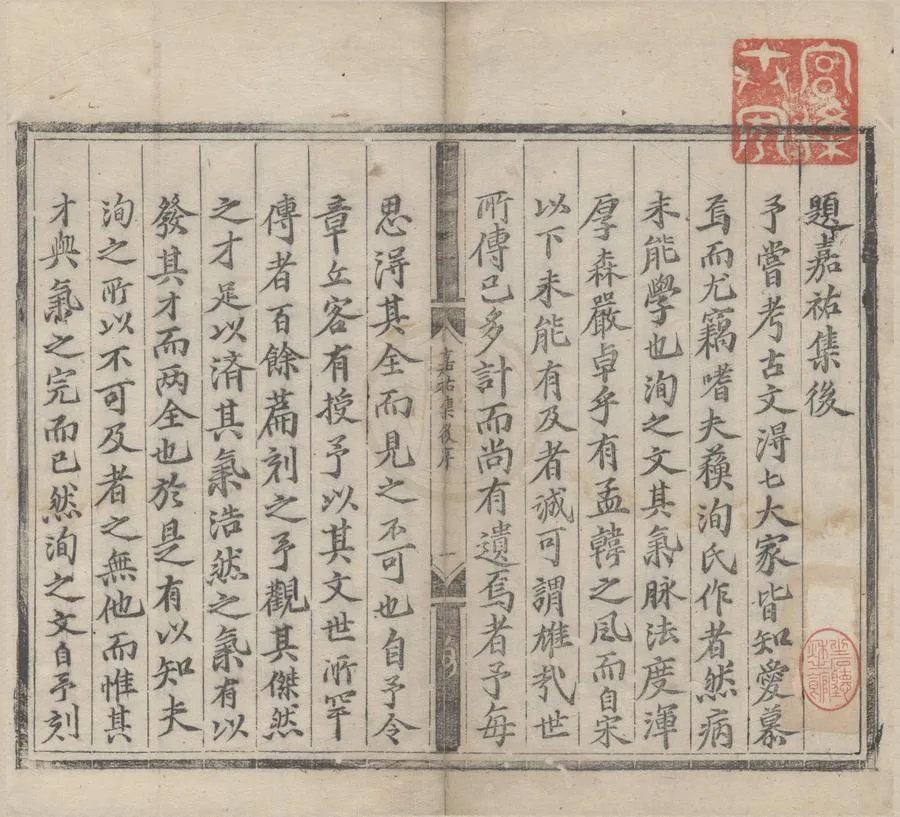 題嘉祐集後
予嘗考古文淂七大家皆知愛慕
焉而尤竊嗜夫蘓洵氏作者然病
未能學也洵之文其氣脉法度渾
厚森嚴卓乎有孟韓之風而自宋
以下未能有及者誠可謂雄㢤世
所傳已多計而尚有遺焉者予每
嘉祐集後序
一
思淂其全而見之不可也自予令
章丘客有授予以其文世所罕
傳者百餘篇刻之予觀其傑然
之才足以済其氣浩然之氣有以
發其才而两全也於是有以知夫
洵之所以不可及者之無他而惟其
才與氣之完而已然洵之文自予刻